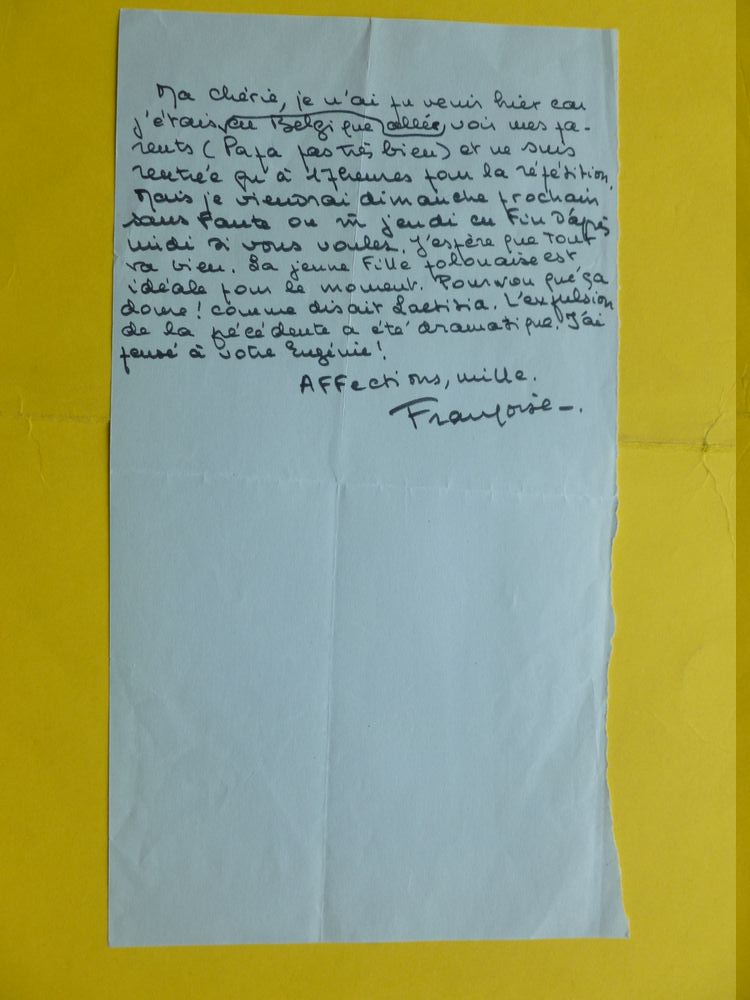 Ma chérie, je n'ai pu venir hier car
j'étais en Belgique allée voir mes pa-
rents (Papa pas très bien) et ne suis
rentrée qu'à 17 heures pour la répétition.
Mais je viendrai dimanche prochain
sans faute ou jeudi en fin d'après
midi si vous voulez. J'espère que tout
va bien. La jeune fille polonaise est
idéale pour le moment. Pourvou que ça
doure! comme disait Laetitia. L'expulsion
de la précédente a été dramatique. J'ai
pensé à votre Eugénie!
Affections, mille.
Françoise.